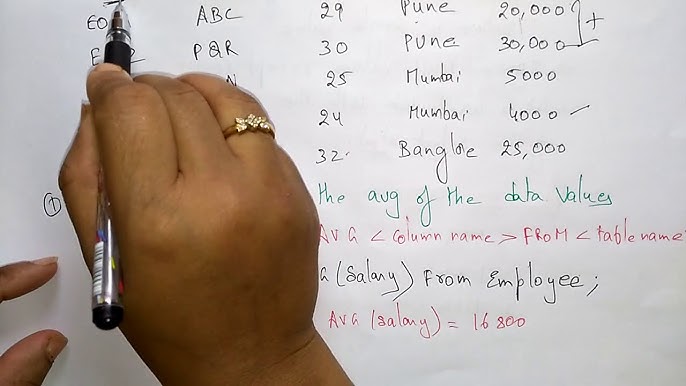 E0 ABC 29 Pune 20,000 +
E 2 PQR 30 Pune 30,000
N 25 Mumbai 5000
24 Mumbai 4000
32 Banglore 25,000
① the avg of the data values
AVG <column name> FROM <tablename
G (Salary) From Employee;
AVG (salary) = 16800